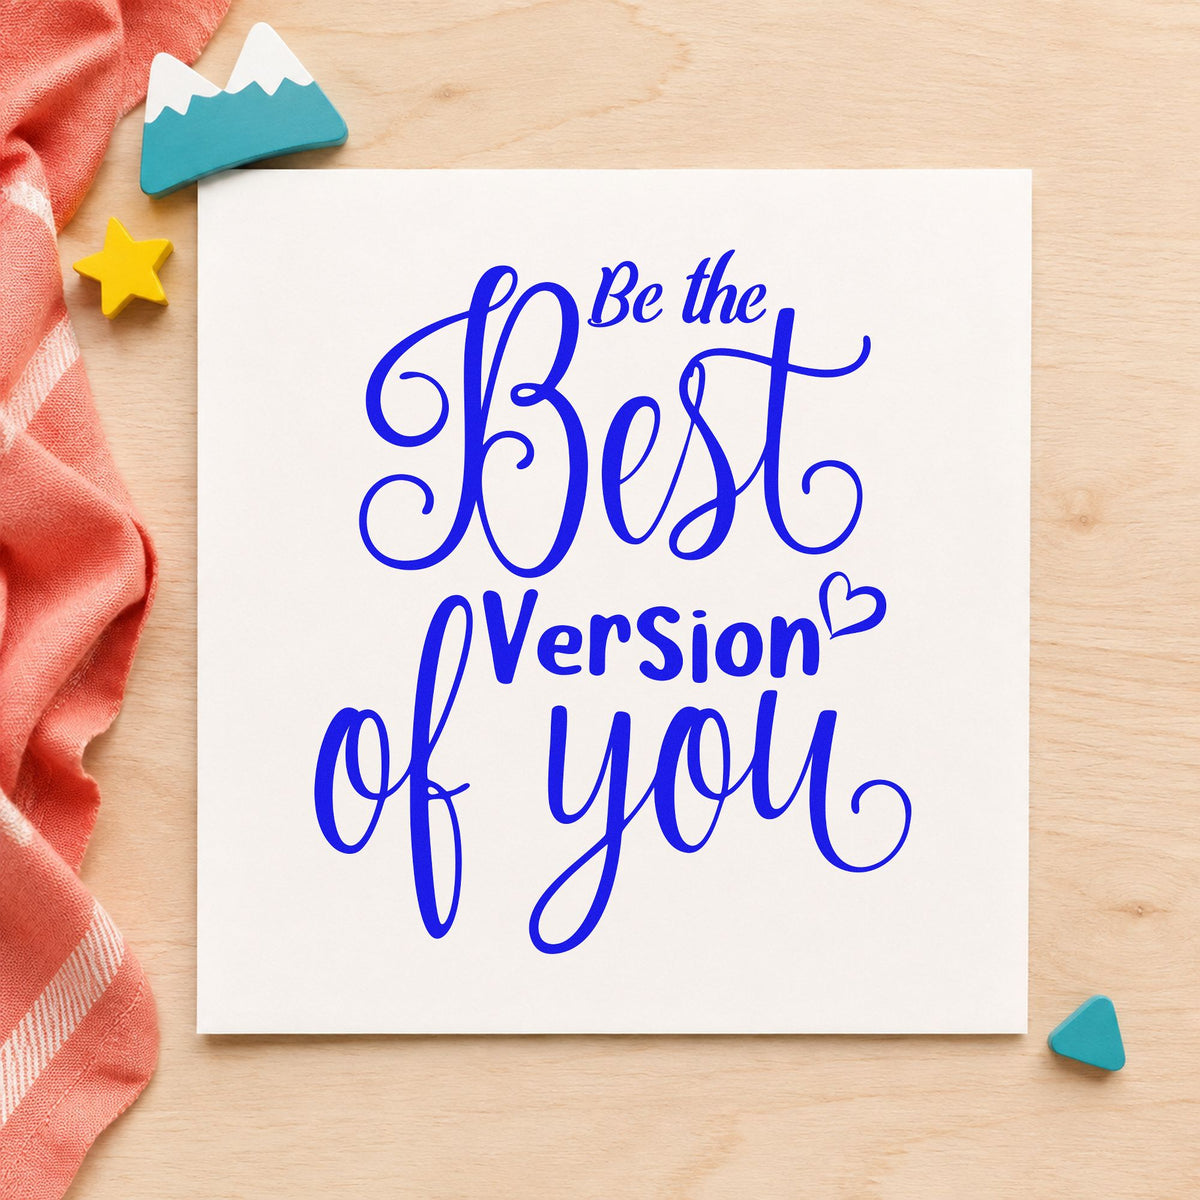 Be the
Best
Version
of you